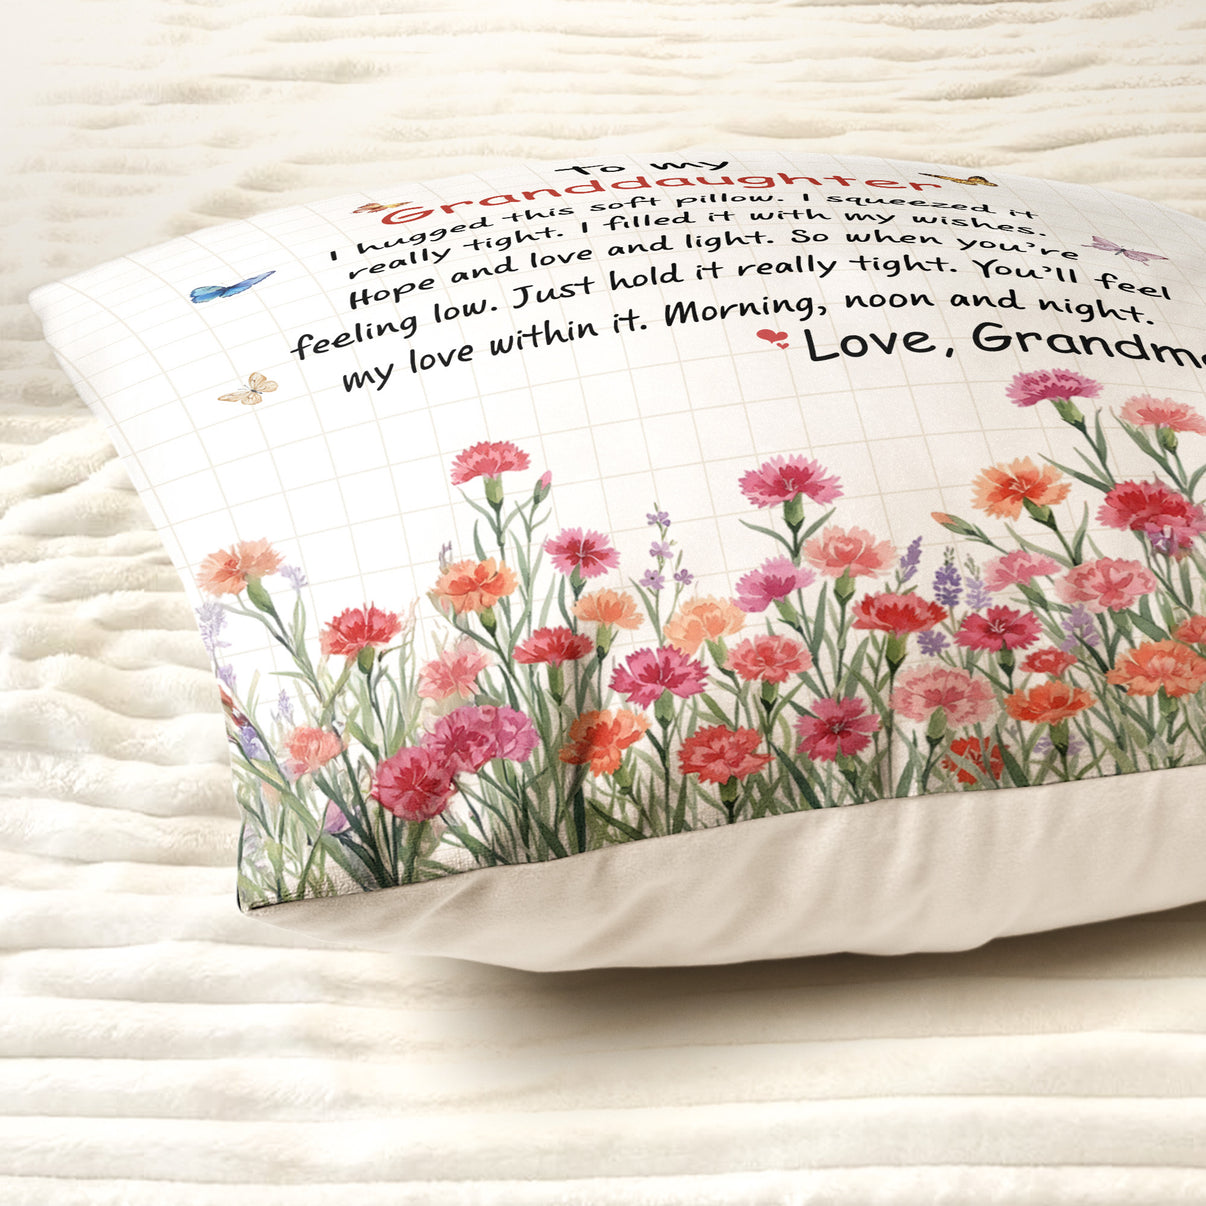 To my
Granddaughter
I hugged this soft pillow. I squeezed it
really tight. I filled it with my wishes.
Hope and love and light. So when you're
feeling low. Just hold it really tight. You'll feel
my love within it. Morning, noon and night.
Love, Grandma